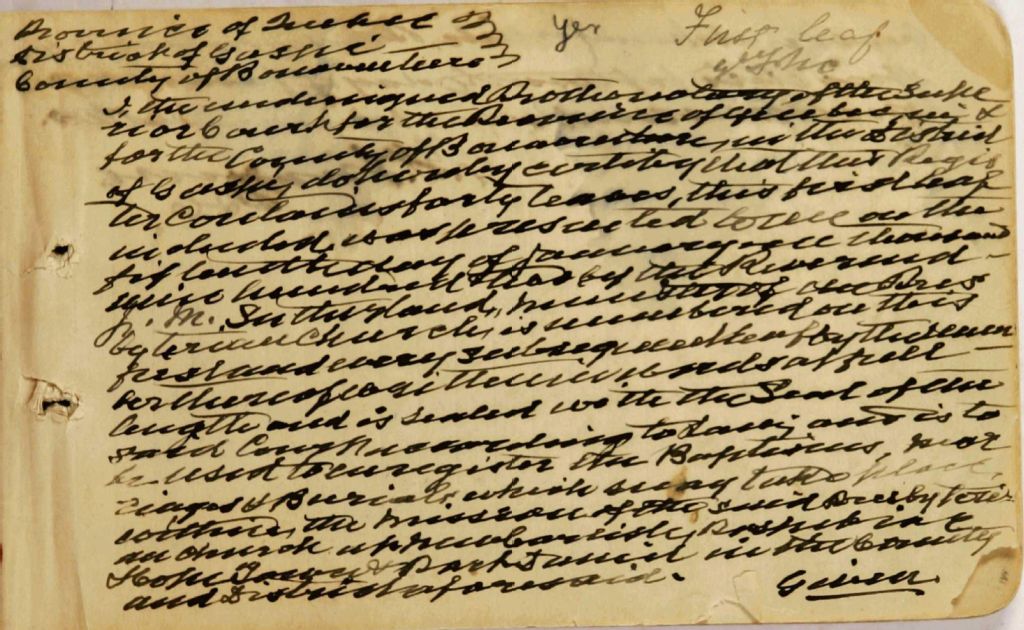 Province of Quebec
District of Gaspé
County of Bonaventure
yes
First leaf
I, the undersigned Prothonotary of the Supe
rior Court for the Province of Quebec in &
for the County of Bonaventure, in the District
of Gaspé, do hereby certify that this Regis
ter contains forty leaves, this first leaf
included, was presented to me on the
fifteenth day of January one thousand
nine hundred & two by the Reverend
J. M. Sutherland, minister of the Pres
byterian Church, is numbered on this
first and every subsequent leaf by the num
ber thereof written in words at full
length and is sealed with the Seal of the
said Court according to law, and is to
be used to enregister the Baptisms, mar
riages & Burials, which may take place
within the mission of the said Presbyteri
an Church at New Carlisle, Paspebiac
Hope Town & Port Daniel in the County
and District aforesaid. Given